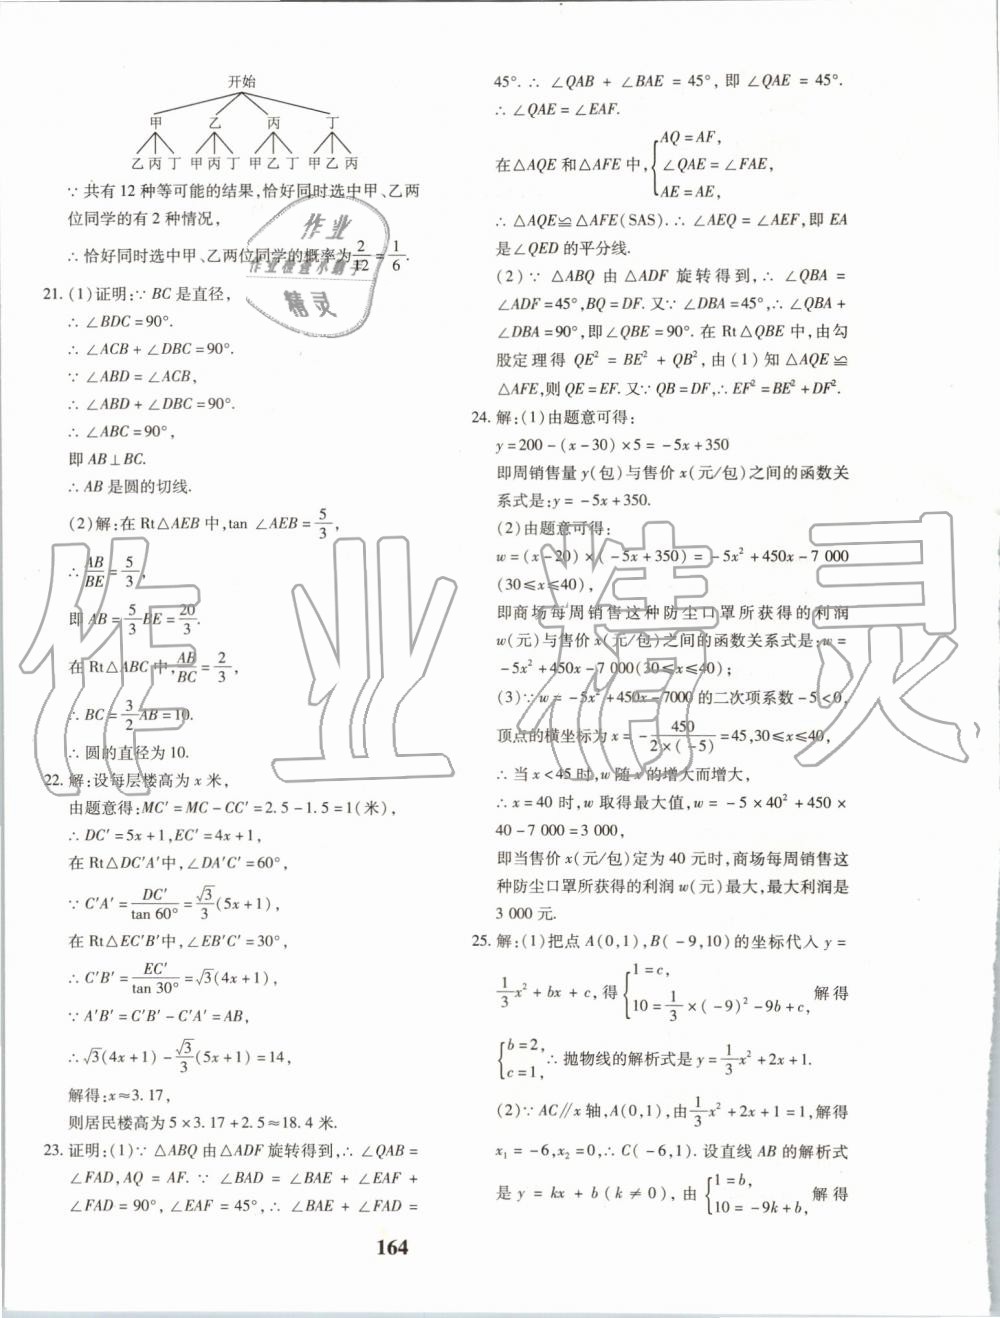 开始
甲 乙 丙 丁
乙 丙 丁 甲 丙 丁 甲 乙 丁 甲 乙 丙
∵共有12种等可能的结果,恰好同时选中甲、乙两
位同学的有2种情况,
∴恰好同时选中甲、乙两位同学的概率为2/12=1/6.
21. (1)证明:∵BC是直径,
∴∠BDC=90°.
∴∠ACB+∠DBC=90°.
∵∠ABD=∠ACB,
∴∠ABD+∠DBC=90°.
∴∠ABC=90°,
即AB⊥BC.
∴AB是圆的切线.
(2)解:在Rt△AEB中,tan ∠AEB=5/3,
∴AB/BE=5/3,
即AB=5/3BE=20/3.
在Rt△ABC中,AB/BC=2/3,
∴BC=3/2AB=10.
∴圆的直径为10.
22. 解:设每层楼高为x米,
由题意得:MC′=MC-CC′=2.5-1.5=1(米),
∴DC′=5x+1,EC′=4x+1,
在Rt△DC′A′中,∠DA′C′=60°,
∵C′A′=DC′/tan 60°=√3/3(5x+1),
在Rt△EC′B′中,∠EB′C′=30°,
∴C′B′=EC′/tan 30°=√3(4x+1),
∵A′B′=C′B′-C′A′=AB,
∴√3(4x+1)-√3/3(5x+1)=14,
解得:x≈3.17,
则居民楼高为5×3.17+2.5≈18.4米.
23. 证明:(1)∵△ABQ由△ADF旋转得到,∴∠QAB=
∠FAD,AQ=AF.∵∠BAD=∠BAE+∠EAF+
∠FAD=90°,∠EAF=45°,∴∠BAE+∠FAD=
45°.∴∠QAB+∠BAE=45°,即∠QAE=45°.
∴∠QAE=∠EAF.
在△AQE和△AFE中,{AQ=AF,
∠QAE=∠FAE,
AE=AE,
∴△AQE≌△AFE(SAS).∴∠AEQ=∠AEF,即EA
是∠QED的平分线.
(2)∵△ABQ由△ADF旋转得到,∴∠QBA=
∠ADF=45°,BQ=DF.又∵∠DBA=45°,∴∠QBA+
∠DBA=90°,即∠QBE=90°.在Rt△QBE中,由勾
股定理得QE²=BE²+QB²,由(1)知△AQE≌
△AFE,则QE=EF.又∵QB=DF,∴EF²=BE²+DF².
24. 解:(1)由题意可得:
y=200-(x-30)×5=-5x+350
即周销售量y(包)与售价x(元/包)之间的函数关
系式是:y=-5x+350.
(2)由题意可得:
w=(x-20)×(-5x+350)=-5x²+450x-7 000
(30≤x≤40),
即商场每周销售这种防尘口罩所获得的利润
w(元)与售价x(元/包)之间的函数关系式是:w=
-5x²+450x-7 000(30≤x≤40);
(3)∵w=-5x²+450x-7000的二次项系数-5<0,
顶点的横坐标为x=-450/2×(-5)=45,30≤x≤40,
∴当x<45时,w随x的增大而增大,
∴x=40时,w取得最大值,w=-5×40²+450×
40-7 000=3 000,
即当售价x(元/包)定为40元时,商场每周销售这
种防尘口罩所获得的利润w(元)最大,最大利润是
3 000元.
25. 解:(1)把点A(0,1),B(-9,10)的坐标代入y=
1/3x²+bx+c,得{1=c,
10=1/3×(-9)²-9b+c, 解得
{b=2,
c=1, ∴抛物线的解析式是y=1/3x²+2x+1.
(2)∵AC∥x轴,A(0,1),由1/3x²+2x+1=1,解得
x₁=-6,x₂=0,∴C(-6,1).设直线AB的解析式
是y=kx+b(k≠0),由{1=b,
10=-9k+b, 解得
164
作业
作业检查小助手
精灵
作业精灵